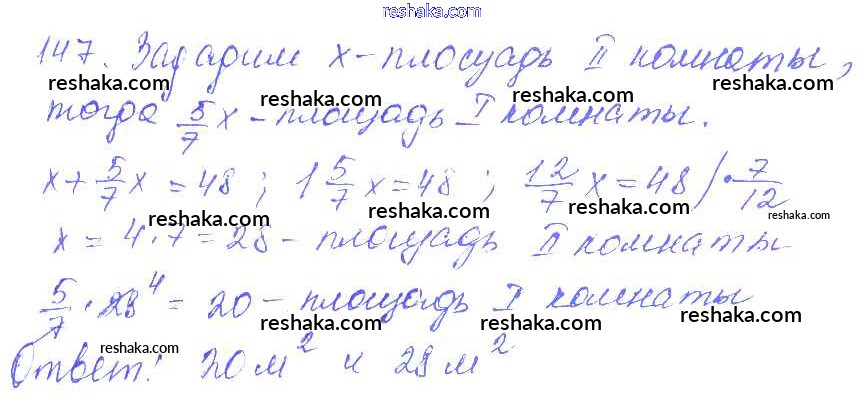 reshaka.com
147. Зададим x - площадь II комнаты,
reshaka.com reshaka.com reshaka.com
тогда 5/7 x - площадь I комнаты.
x + 5/7 x = 48 ; 1 5/7 x = 48 ; 12/7 x = 48 | · 7/12
reshaka.com reshaka.com reshaka.com reshaka.com
x = 4 · 7 = 28 - площадь II комнаты
5/7 · 28 4 = 20 - площадь I комнаты
reshaka.com reshaka.com reshaka.com
Ответ: 20 м² и 28 м²
reshaka.com reshaka.com reshaka.com